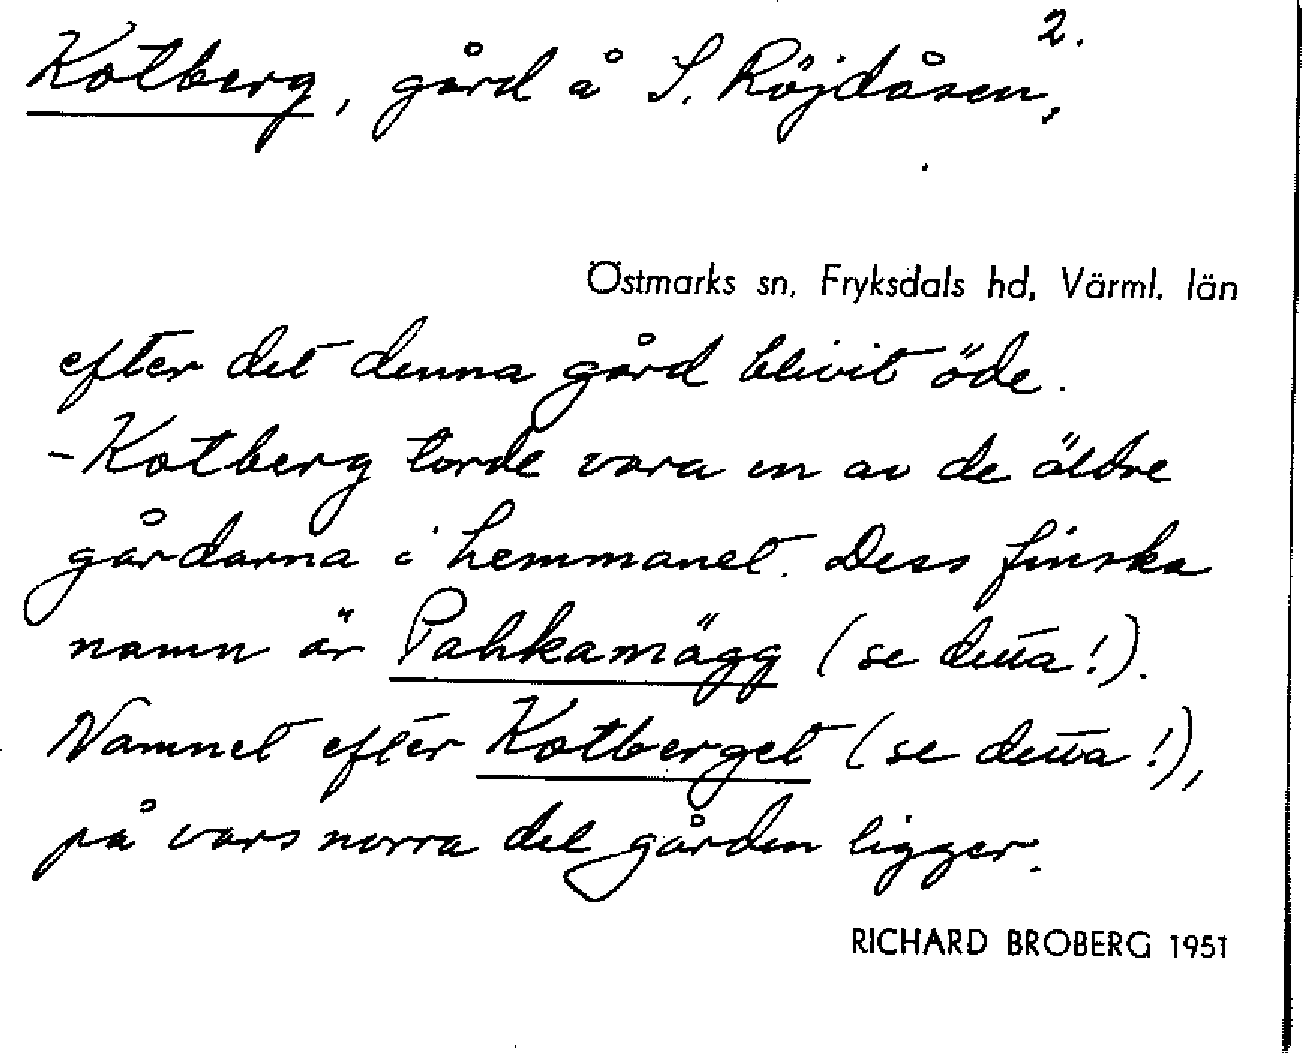 2.
Kotberg, gård å S. Röjdåsen,
Östmarks sn, Fryksdals hd, Värml. län
efter det denna gård blivit öde.
- Kotberg torde vara en av de äldre
gårdarna i hemmanet. Dess finska
namn är Pahkamägg (se detta!).
Namnet efter Kotberget (se detta!),
på vars norra del gården ligger.
RICHARD BROBERG 1951